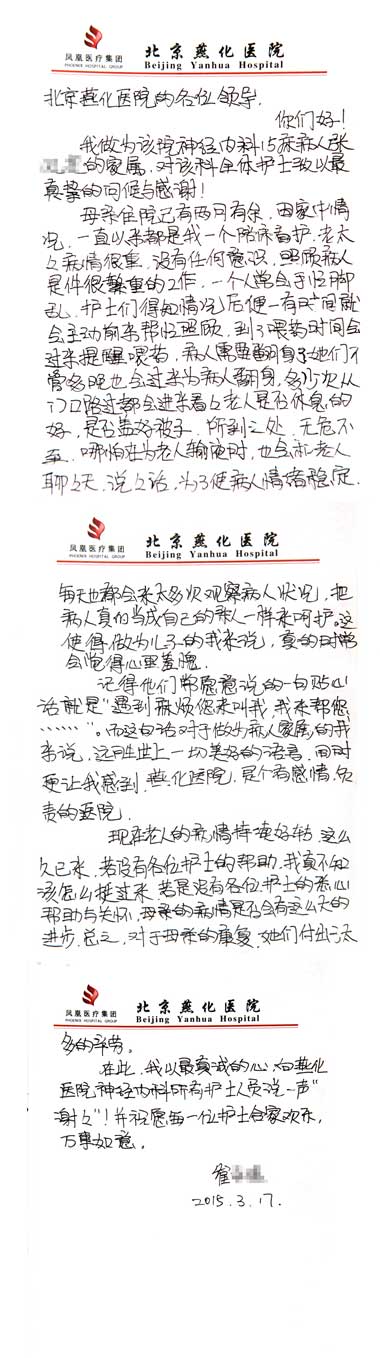 凤凰医疗集团 北京燕化医院
PHOENIX HOSPITAL GROUP Beijing Yanhua Hospital
北京燕化医院的各位领导.
你们好!
我做为该院神经内科15床病人张
的家属,对该科全体护士致以最
真挚的问候与感谢!
母亲住院已有两月有余,因家中情
况,一直以来都是我一个陪床看护,老太
太病情很重,没有任何意识,照顾病人
是件很繁重的工作,一个人常会手忙脚
乱,护士们得知情况后便一有时间就
会主动前来帮忙照顾,到了喂药时间会
过来提醒喂药,病人需要翻身了她们不
管多晚也会过来为病人翻身,多少次从
门口路过都会进来看看老人是否休息的
好,是否盖好被子.所到之处,无危不
至.哪怕在为老人输液时,也会和老人
聊々天,说々话,为了使病人情绪稳定.
凤凰医疗集团 北京燕化医院
PHOENIX HOSPITAL GROUP Beijing Yanhua Hospital
每天也都会来太多次观察病人状况,把
病人真的当成自己的亲人一样来呵护。这
使得做为儿子的我来说,真的时常
会觉得心里羞愧.
记得他们常愿意说的一句贴心
话就是“遇到麻烦您来叫我,我来帮您,
……”。而这句话对于做为病人家属的我
来说,远胜世上一切美好的语言.同时
更让我感到.燕化医院,是个有感情,负
责的医院.
现在老人的病情在逐好转,这么
久已来,若没有各位护士的帮助,我真不知
该怎么挺过来.若是没有各位护士的悉心
帮助与关怀,母亲的病情是否会有这么大的
进步.总之,对于母亲的康复,她们付出了太
凤凰医疗集团 北京燕化医院
PHOENIX HOSPITAL GROUP Beijing Yanhua Hospital
多的辛劳。
在此,我以最真诚的心,向燕化
医院神经内科所有护士人员说一声“
谢々”!并祝愿每一位护士合家欢乐,
万事如意。
崔
2015.3.17.